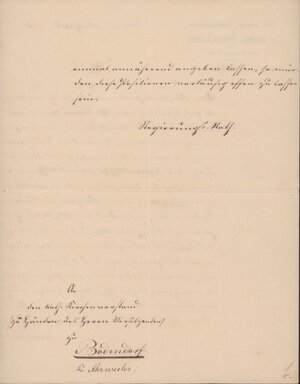 einmal annähernd angeben lassen, so wür-
den diese Positionen vorläufig offen zu lassen
sein.
Regierungs-Rath.
An
den kath. Kirchenvorstand
(zu Händen des Herrn Vorsitzenden)
zu
Bodendorf
Kr. Ahrweiler.